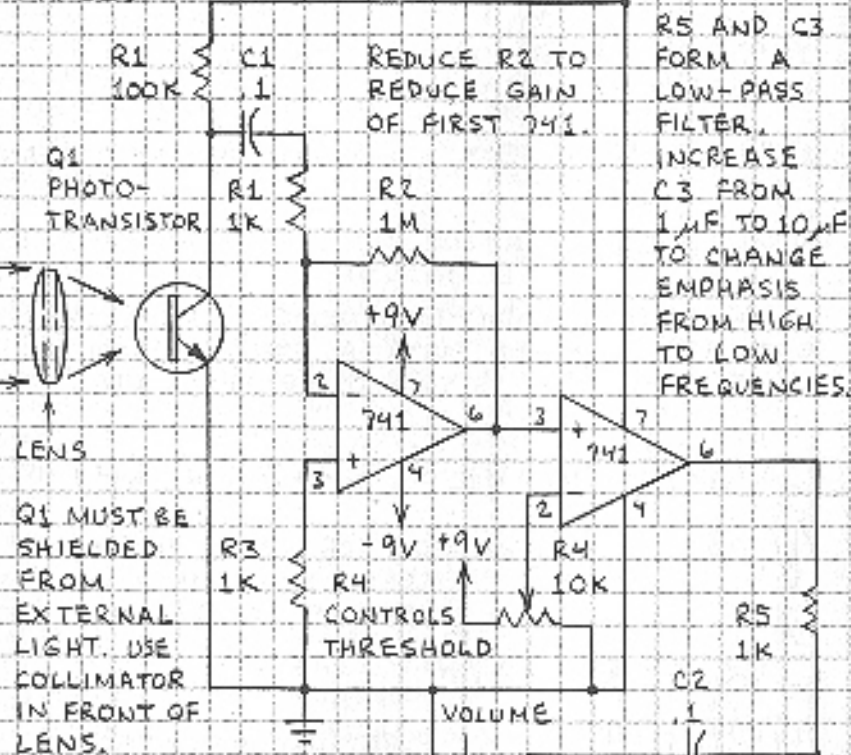 R1
100K
C1
.1
REDUCE R2 TO
REDUCE GAIN
OF FIRST 741.
R5 AND C3
FORM A
LOW-PASS
FILTER.
INCREASE
C3 FROM
1 µF TO 10 µF
TO CHANGE
EMPHASIS
FROM HIGH
TO LOW
FREQUENCIES.
Q1
PHOTO-
TRANSISTOR
R1
1K
R2
1M
+9V
2
-
7
741
6
3
+
4
-9V
3
+
7
741
6
2
-
4
LENS
Q1 MUST BE
SHIELDED
FROM
EXTERNAL
LIGHT. USE
COLLIMATOR
IN FRONT OF
LENS.
R3
1K
+9V
R4
10K
R4
CONTROLS
THRESHOLD
R5
1K
C2
.1
VOLUME